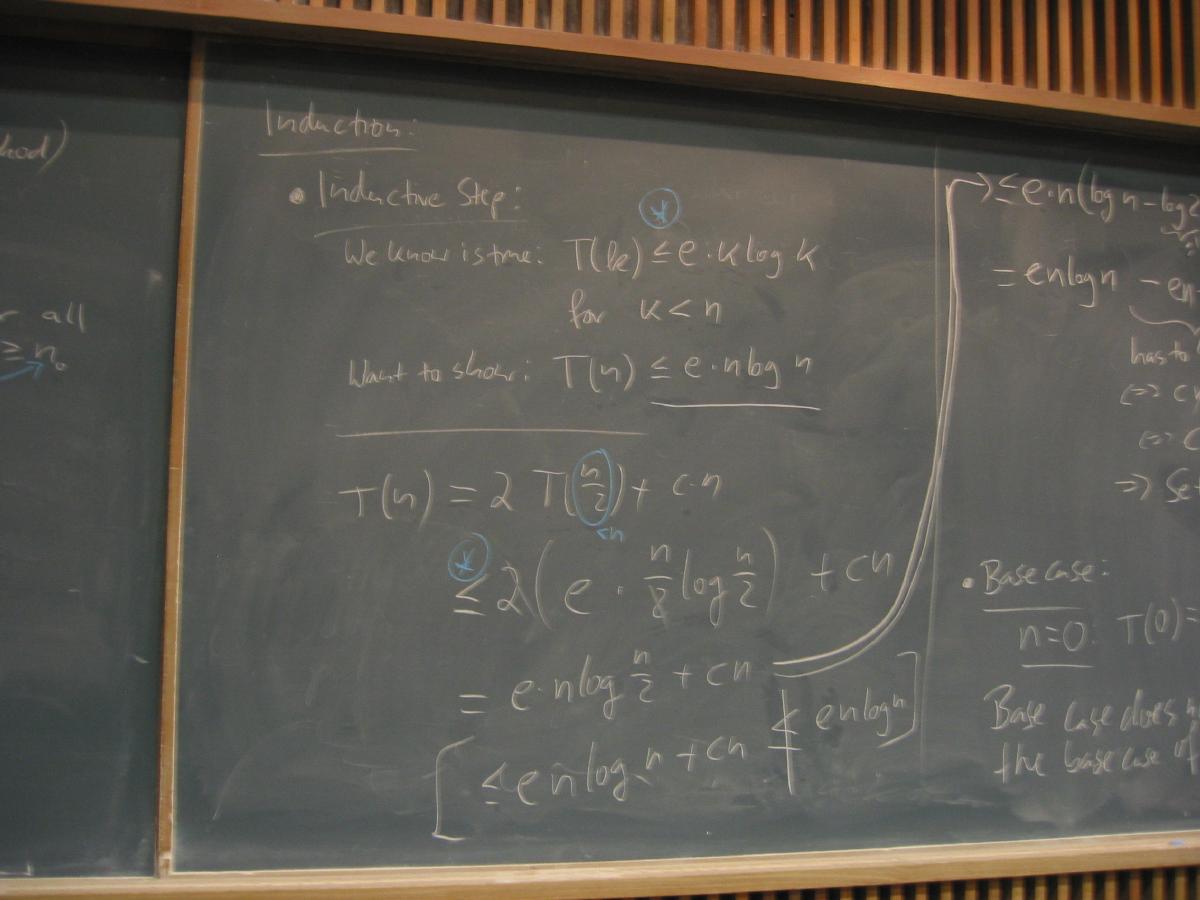 hod)
r all
≥ n₀
Induction:
• Inductive Step:
*
We know is true: T(k) ≤ e·k log k
for k < n
Want to show: T(n) ≤ e·n log n
T(n) = 2 T(n/2) + c·n
<n
* ≤ 2(e · n/2 log n/2) + cn
= e·n log n/2 + cn
[ ≤ e n log n + cn ≰ en log n ]
→ ≤ e·n(log n - log
= en log n - en
has to
⇔ c
⇔ C
⇒ Set
• Base case:
n=0: T(0) =
Base case does
the base case of